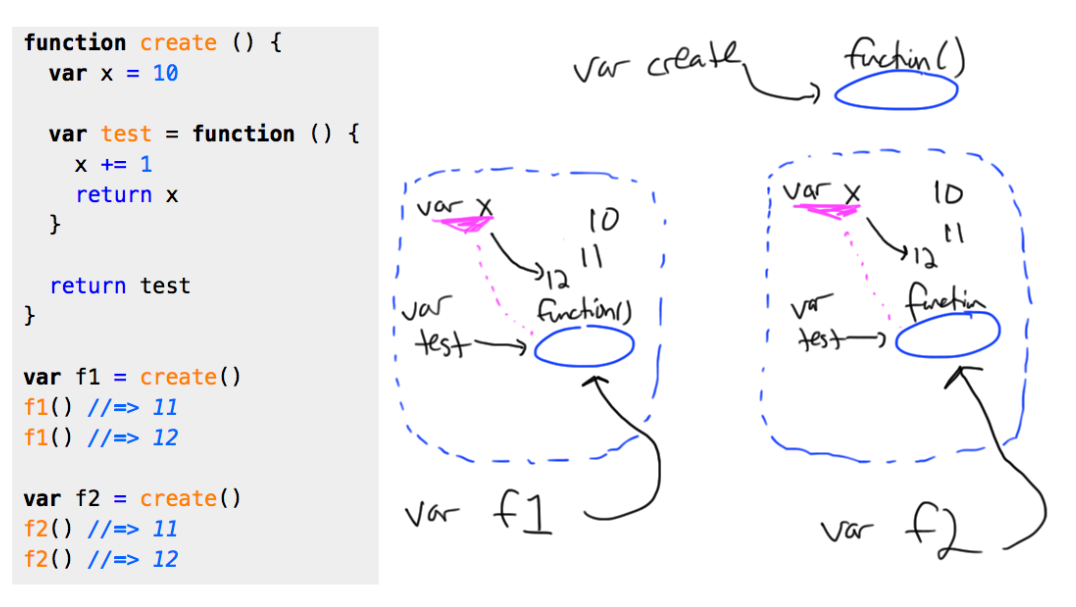 function create () {
var x = 10
var test = function () {
x += 1
return x
}
return test
}
var f1 = create()
f1() //=> 11
f1() //=> 12
var f2 = create()
f2() //=> 11
f2() //=> 12
var create function()
var x 10
11
12
var function()
test
var f1
var x 10
11
12
var function
test
var f2